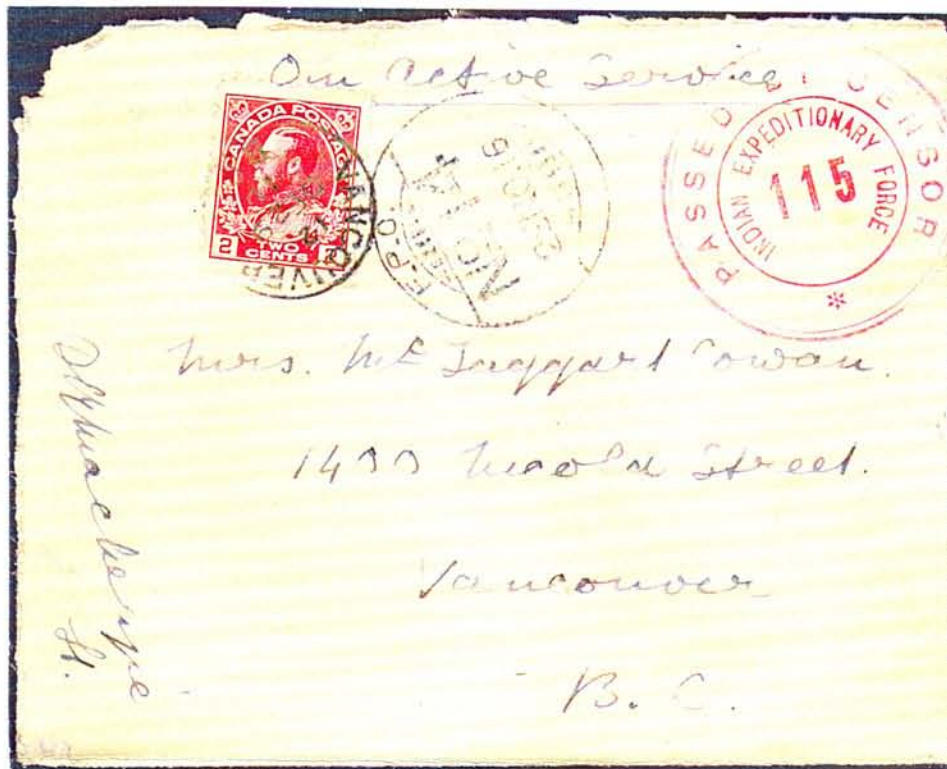 On Active Service
CANADA POSTAGE
2 TWO CENTS 2
VANCOUVER
F.P.O.
No. 11
PASSED CENSOR
INDIAN EXPEDITIONARY FORCE
115
*
Mrs. Mc Taggart Cowan.
Street.
Vancouver
B. C.
Lt.